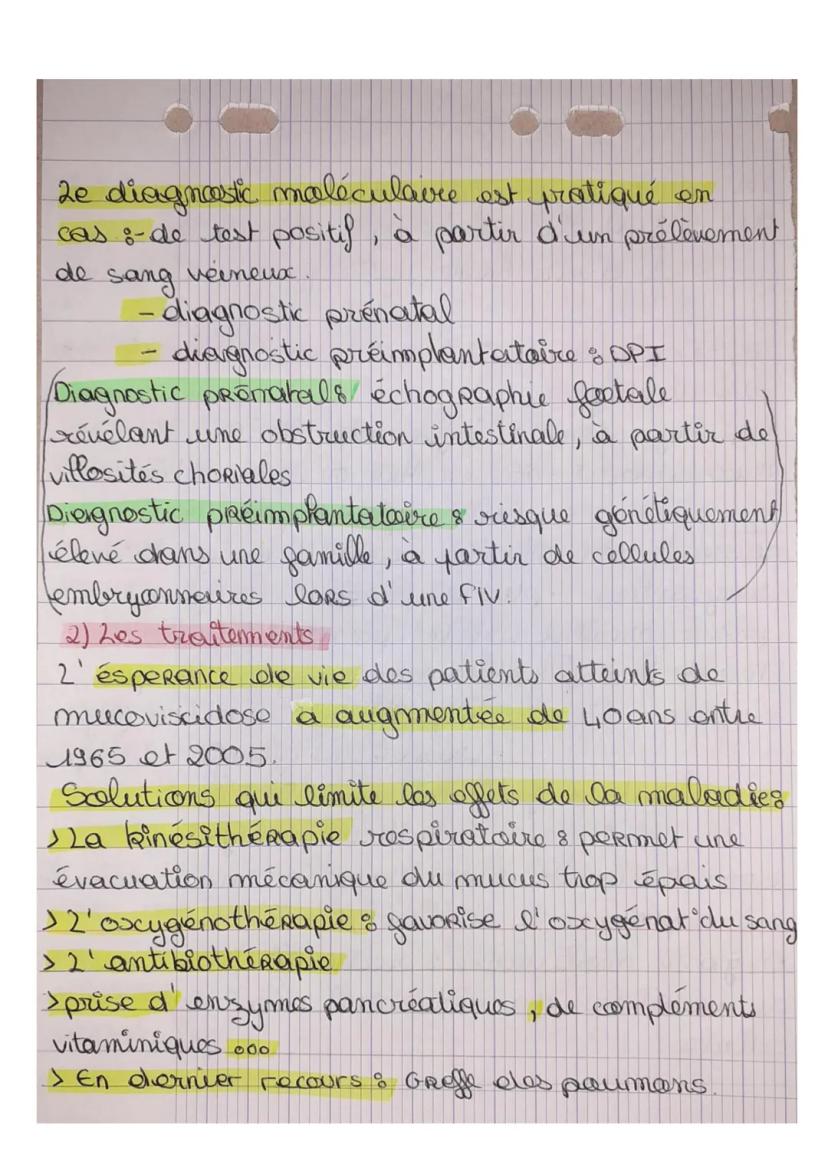 Le diagnostic moléculaire est pratiqué en
cas :- de test positif, à partir d'un prélèvement
de sang veineux.
- diagnostic prénatal
- diagnostic préimplantatoire : DPI
Diagnostic prénatal : échographie foetale
révélant une obstruction intestinale, à partir de
villosités choriales
Diagnostic préimplantatoire : risque génétiquement
élevé dans une famille, à partir de cellules
embryonnaires lors d'une FIV.
2) Les traitements
L'ésperance de vie des patients atteints de
mucoviscidose a augmentée de 40ans entre
1965 et 2005.
Solutions qui limite les effets de la maladie :
> La kinésithérapie respiratoire : permet une
évacuation mécanique du mucus trop épais
> L'oxygénothérapie : favorise l'oxygénat° du sang
> L'antibiothérapie
> prise d'enzymes pancréatiques, de compléments
vitaminiques ...
> En dernier recours : Greffe des poumons.